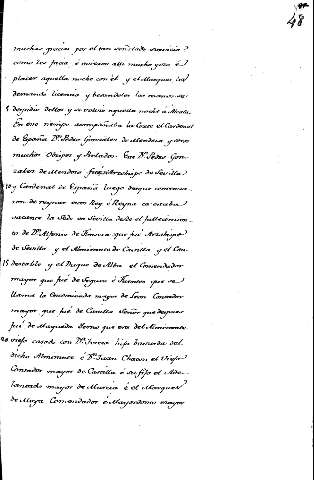 48
muchas gracias por el tan señalado servicio
como les facia é hicieron alli mucha fiesta é
placer aquella noche con él y el Marques les
demandó licencia y besandoles las manos se
5 despidió dellos y se volvio aquella noche a Alcala.
En ese tiempo acompañaba la Corte el Cardenal
de España Dn. Pedro Gonzalez de Mendoza y otros
muchos Obispos y Prelados. Este Dn. Pedro Gon-
zalez de Mendoza fue Arzobispo de Sevilla
10 y Cardenal de España luego que comenza-
ron de reynar estos Rey é Reyna ca estaba
vacante la Sede en Sevilla desde el fallecimien-
to de Dn. Alfonso de Fonseca que fué Arzobispo
de Sevilla y el Almirante de Castilla y el Con-
15 destable y el Duque de Alba el Comendador
mayor que fué de Segura é Fuentes que se
llama la Encomienda mayor de Leon Contador
mayor que fué de Castilla Señor que despues
fué de Maqueda Yerno que era del Almirante
20 viejo casado con Da. Teresa hija bastarda del
dicho Almirante é Dn. Juan Chacon el Viejo
Contador mayor de Castilla é su fijo el Ade-
lantado mayor de Murcia é el Marques
de Moya Comendador é Mayordomo mayor